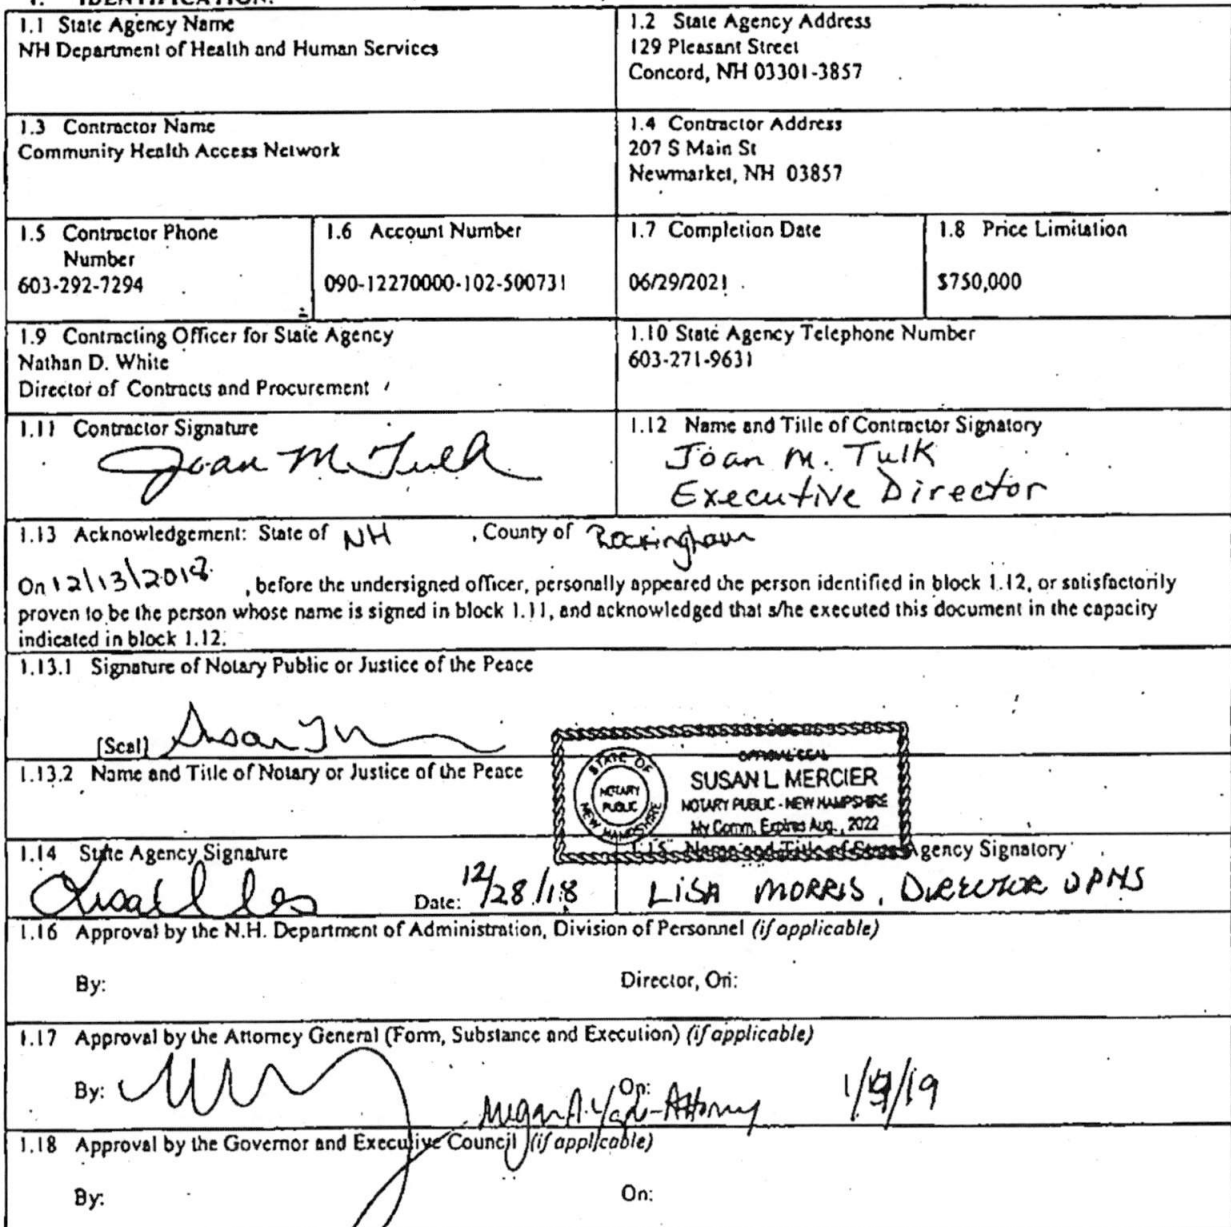 1. IDENTIFICATION.
1.1 State Agency Name
NH Department of Health and Human Services
1.2 State Agency Address
129 Pleasant Street
Concord, NH 03301-3857
1.3 Contractor Name
Community Health Access Network
1.4 Contractor Address
207 S Main St
Newmarket, NH 03857
1.5 Contractor Phone
Number
603-292-7294
1.6 Account Number
090-12270000-102-500731
1.7 Completion Date
06/29/2021
1.8 Price Limitation
$750,000
1.9 Contracting Officer for State Agency
Nathan D. White
Director of Contracts and Procurement
1.10 State Agency Telephone Number
603-271-9631
1.11 Contractor Signature
Joan M. Tulk
1.12 Name and Title of Contractor Signatory
Joan M. Tulk
Executive Director
1.13 Acknowledgement: State of NH , County of Rockingham
On 12/13/2018 , before the undersigned officer, personally appeared the person identified in block 1.12, or satisfactorily
proven to be the person whose name is signed in block 1.11, and acknowledged that s/he executed this document in the capacity
indicated in block 1.12.
1.13.1 Signature of Notary Public or Justice of the Peace
[Seal] Susan
1.13.2 Name and Title of Notary or Justice of the Peace
STATE OF
NOTARY
PUBLIC
NEW HAMPSHIRE
OFFICIAL SEAL
SUSAN L. MERCIER
NOTARY PUBLIC - NEW HAMPSHIRE
My Comm. Expires Aug. , 2022
1.14 State Agency Signature
Date: 12/28/18
1.15 Name and Title of State Agency Signatory
LISA MORRIS, DIRECTOR DPHS
1.16 Approval by the N.H. Department of Administration, Division of Personnel (if applicable)
By:
Director, On:
1.17 Approval by the Attorney General (Form, Substance and Execution) (if applicable)
By:
On:
Megan A. - Attorney
1.18 Approval by the Governor and Executive Council (if applicable)
By:
On: